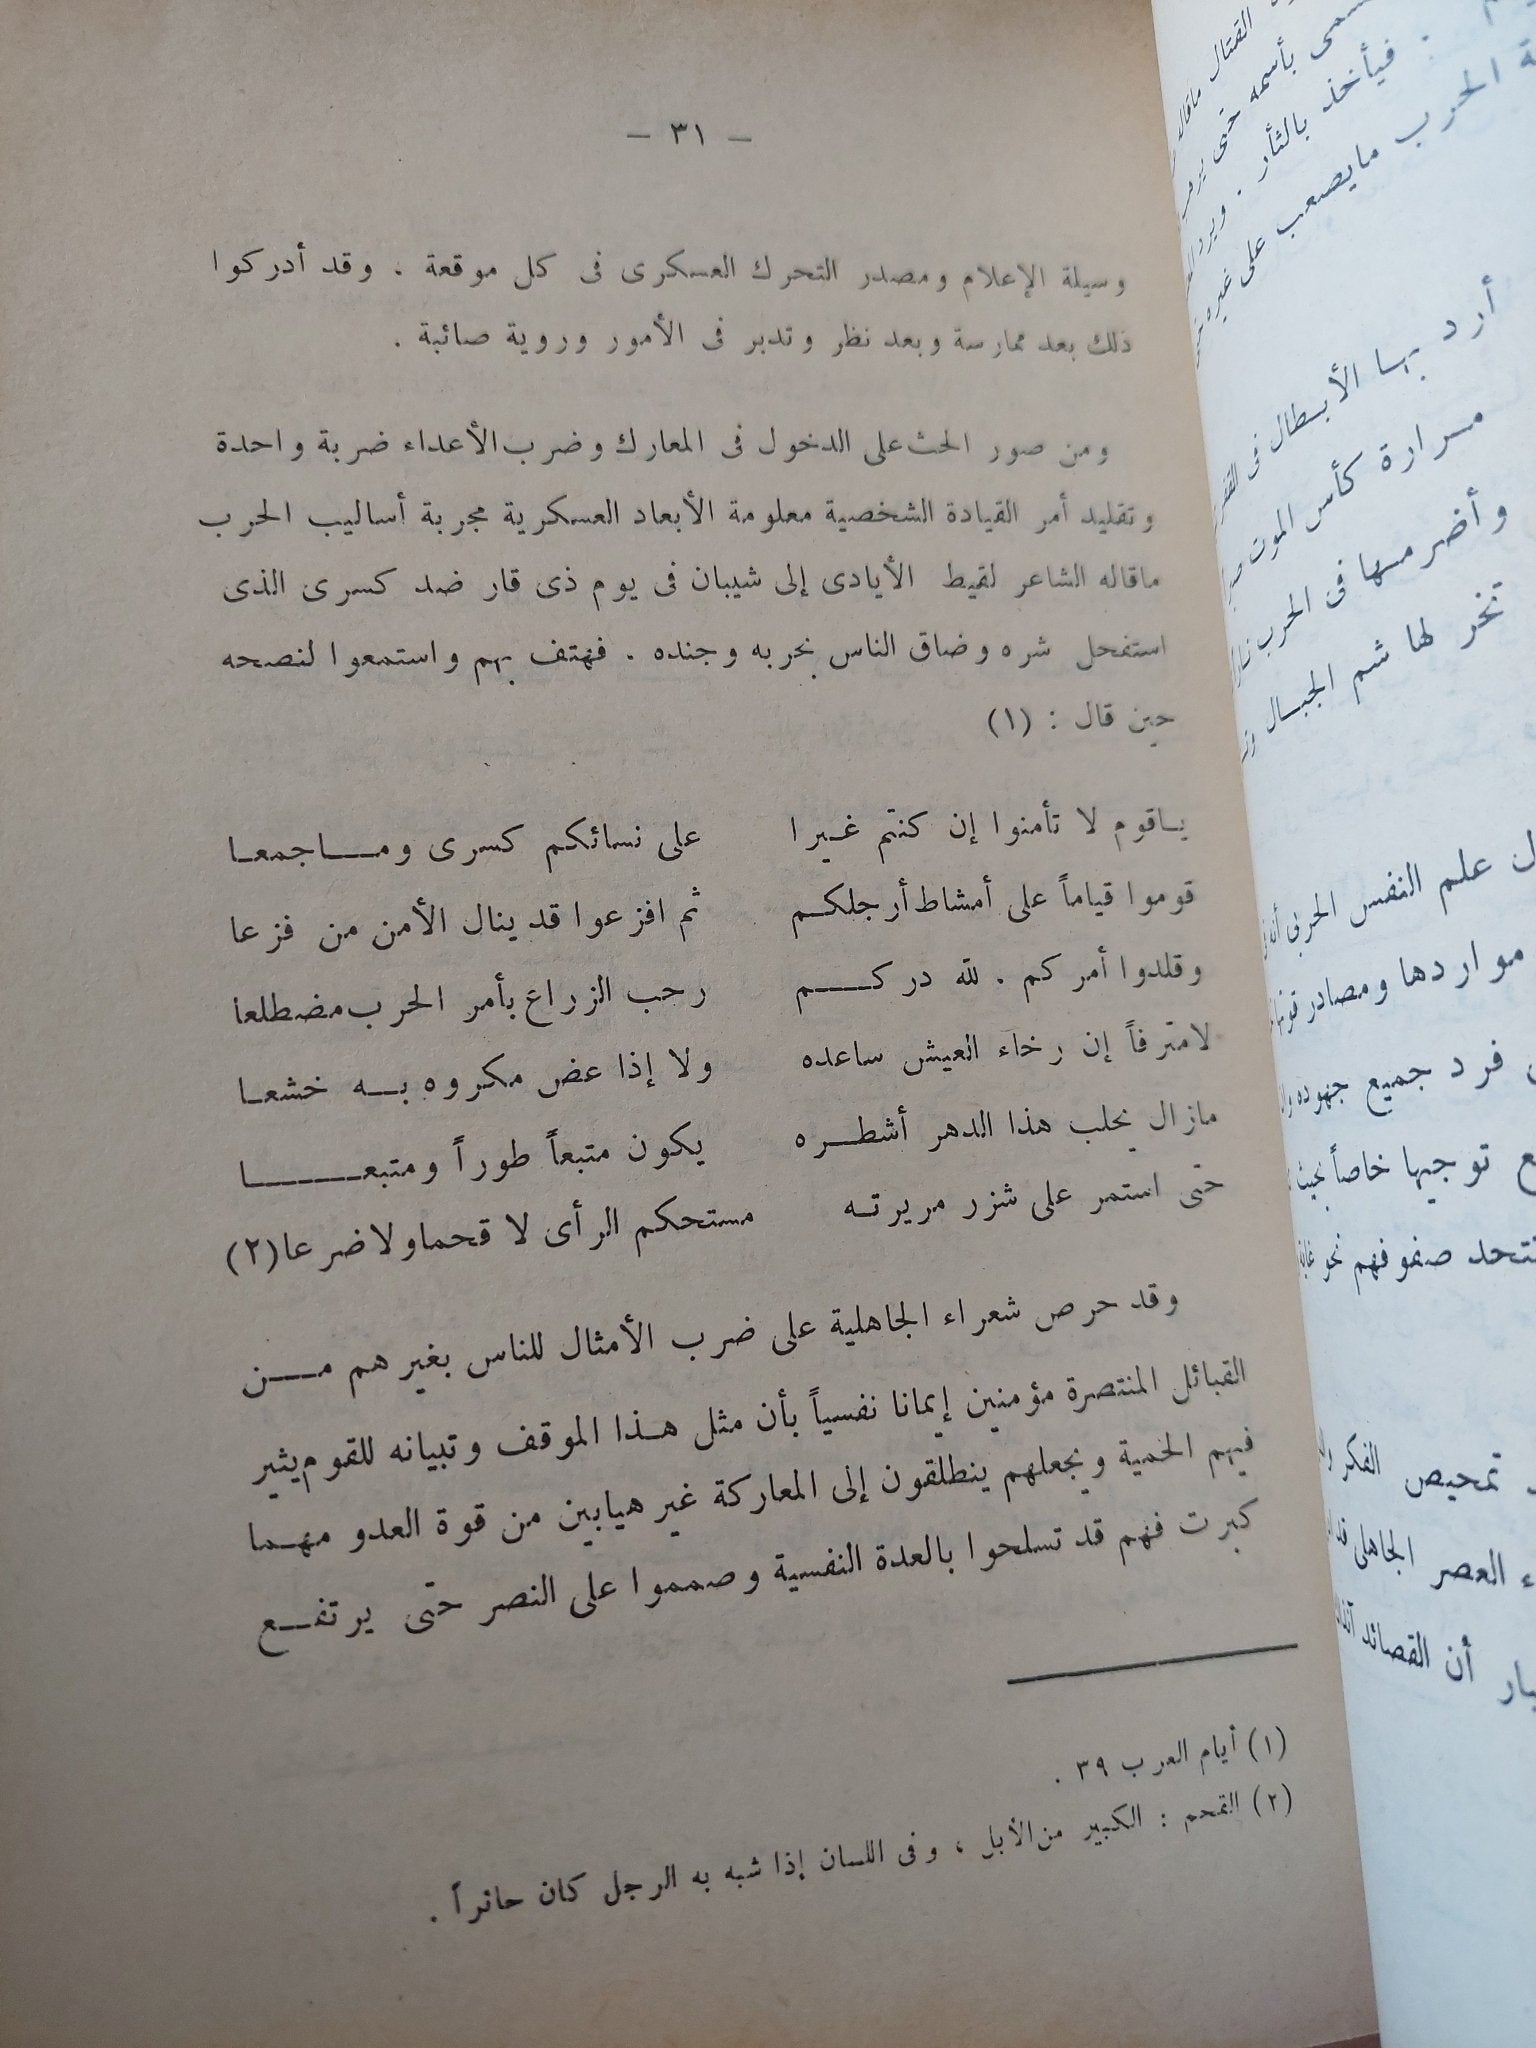 — ٣١ —
وسيلة الإعلام ومصدر التحرك العسكرى فى كل موقعة . وقد أدركوا
ذلك بعد ممارسة وبعد نظر وتدبر فى الأمور وروية صائبة .
ومن صور الحث على الدخول فى المعارك وضرب الأعداء ضربة واحدة
وتقليد أمر القيادة الشخصية معلومة الأبعاد العسكرية مجربة أساليب الحرب
ماقاله الشاعر لقيط الأيادى إلى شيبان فى يوم ذى قار ضد كسرى الذى
استفحل شره وضاق الناس بحربه وجنده . فهتف بهم واستمعوا لنصحه
حين قال : (١)
ياقوم لا تأمنوا إن كنتم غيرا على نسائكم كسرى وماجمعا
قوموا قياماً على أمشاط أرجلكم ثم افزعوا قد ينال الأمن من فزعا
وقلدوا أمركم . لله دركم رحب الزراع بأمر الحرب مضطلعا
لامترفاً إن رخاء العيش ساعده ولا إذا عض مكروه به خشعا
مازال يحلب هذا الدهر أشطره يكون متبعاً طوراً ومتبعا
حتى استمر على شزر مريرته مستحكم الرأى لا قحما ولا ضرعا (٢)
وقد حرص شعراء الجاهلية على ضرب الأمثال للناس بغيرهم من
القبائل المنتصرة مؤمنين إيمانا نفسياً بأن مثل هذا الموقف وتبيانه للقوم يثير
فيهم الحمية ويجعلهم ينطلقون إلى المعاركة غير هيابين من قوة العدو مهما
كبرت فهم قد تسلحوا بالعدة النفسية وصمموا على النصر حتى يرتفع
(١) أيام العرب ٣٩ .
(٢) القحم : الكبير من الأبل ، وفى اللسان إذا شبه به الرجل كان حائراً .
القتال ماقاله
بأسمه حتى
. فيأخذ بالثأر .
الحرب مايصعب على غيره
أرد بها الأبطال فى
مرارة كأس الموت
وأضرمها فى الحرب
تخر لها شم الجبال
علم النفس الحربى
مواردها ومصادر
فرد جميع جهوده
توجيها خاصاً بحيث
صفوفهم نحو
تمحيص الفكر
العصر الجاهلى
أن القصائد